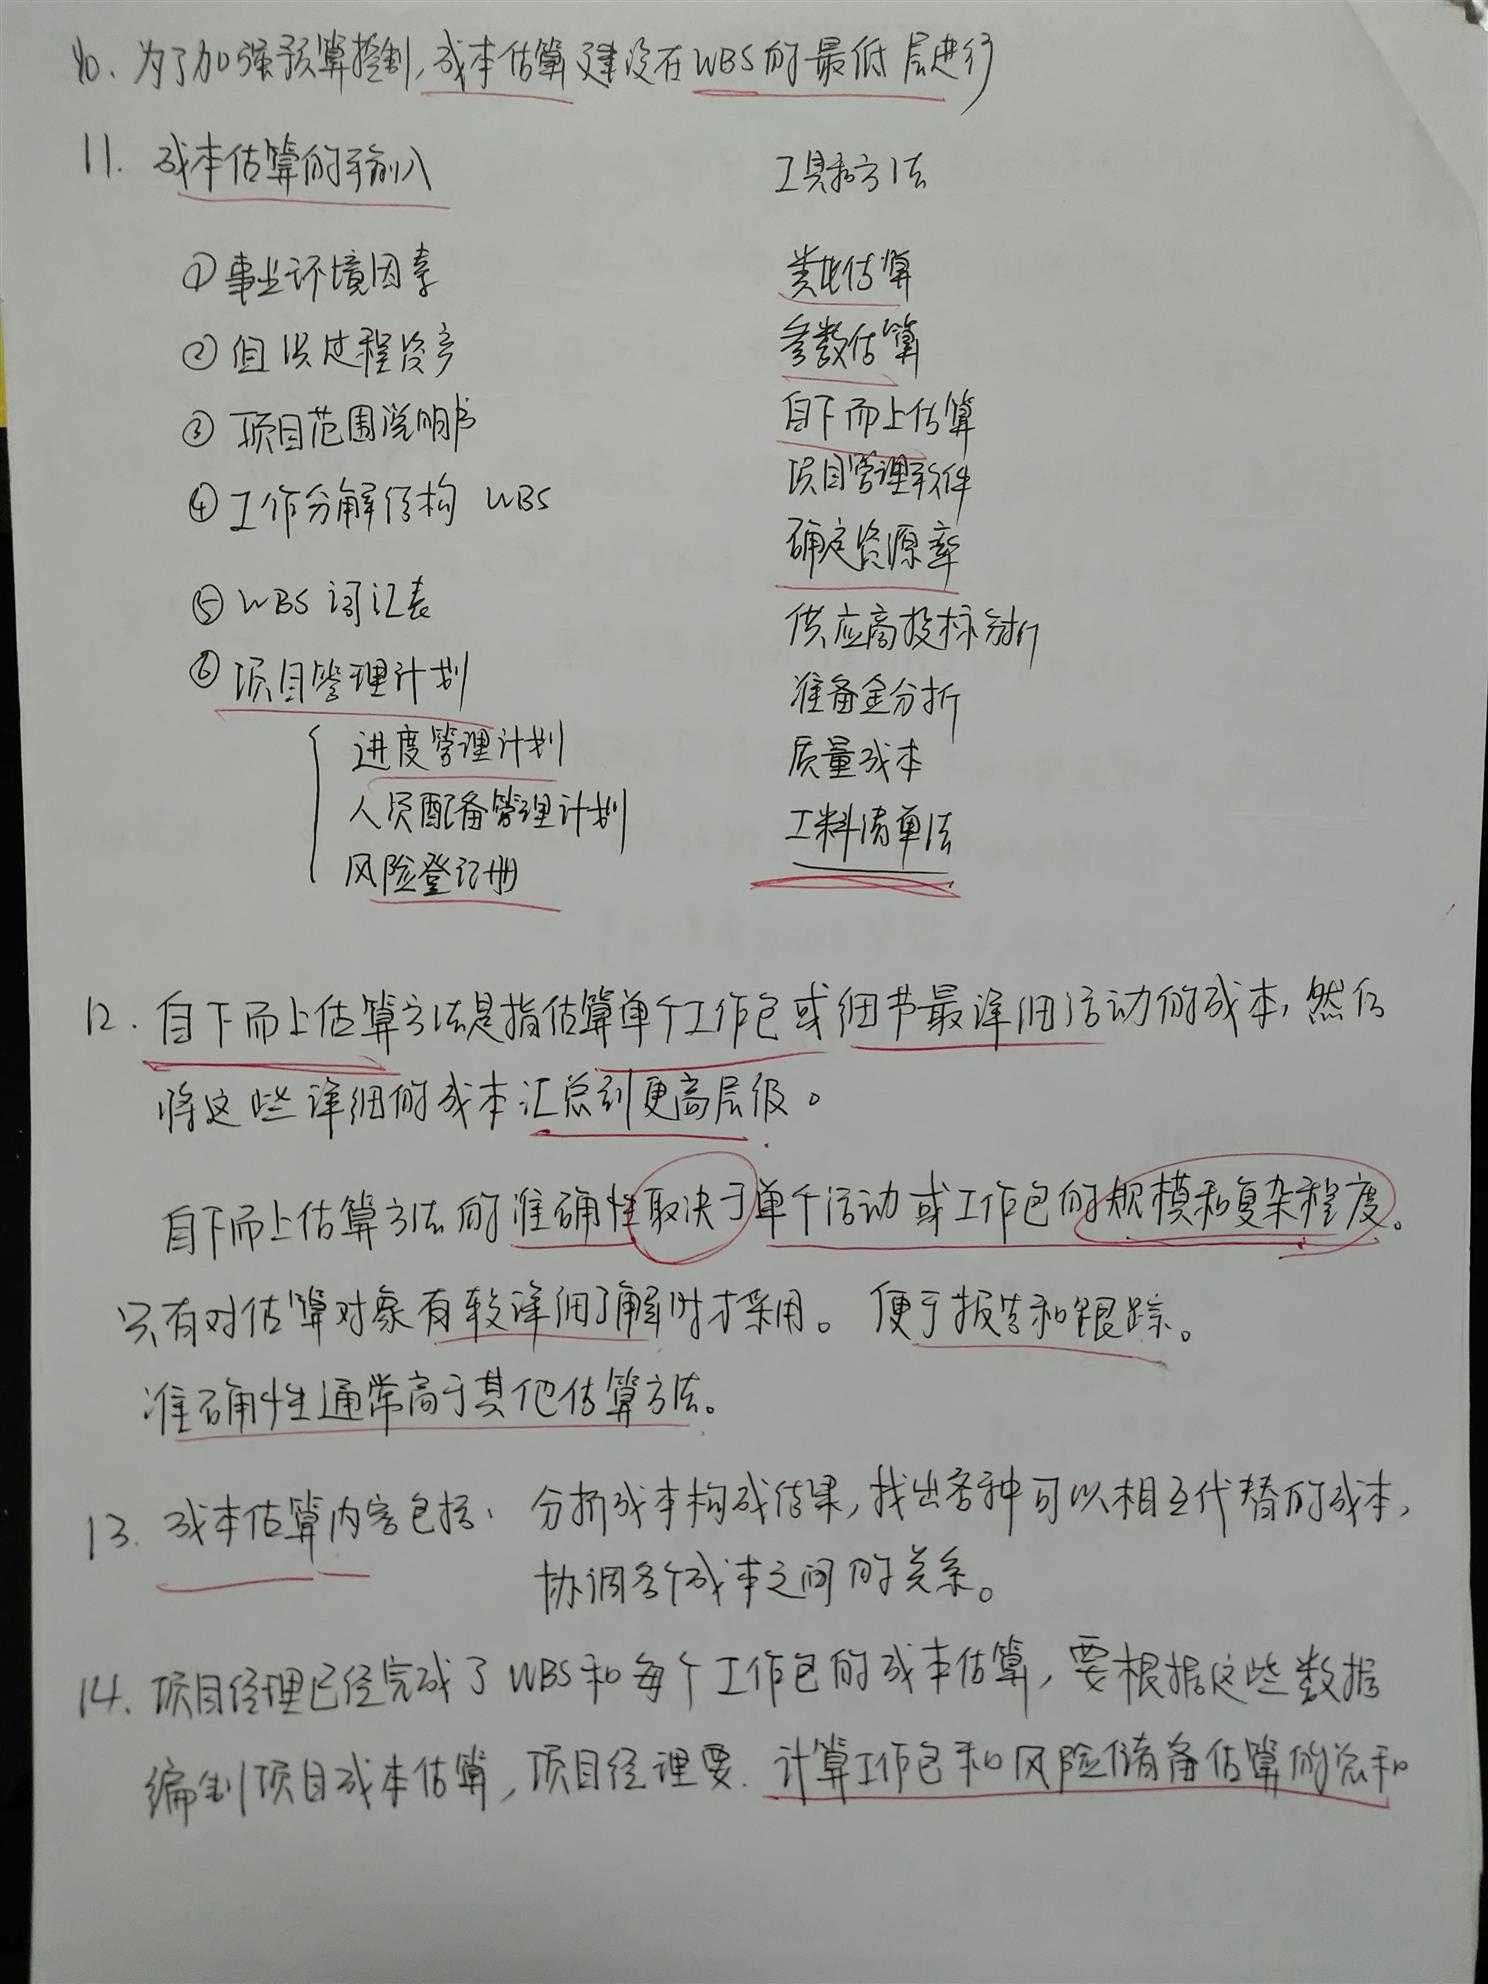 10. 为了加强预算控制,成本估算建议在WBS的最低层进行
11. 成本估算的输入
工具和方法
①事业环境因素
②组织过程资产
③项目范围说明书
④工作分解结构 WBS
⑤WBS词汇表
⑥项目管理计划
进度管理计划
人员配备管理计划
风险登记册
类比估算
参数估算
自下而上估算
项目管理软件
确定资源率
供应商投标分析
准备金分析
质量成本
工料清单法
12. 自下而上估算方法是指估算单个工作包或细节最详细活动的成本,然后
将这些详细的成本汇总到更高层级。
自下而上估算方法的准确性取决于单个活动或工作包的规模和复杂程度。
只有对估算对象有较详细了解时才采用。 便于报告和跟踪。
准确性通常高于其他估算方法。
13. 成本估算内容包括、 分析成本构成结果,找出各种可以相互代替的成本,
协调各个成本之间的关系。
14. 项目经理已经完成了WBS和每个工作包的成本估算,要根据这些数据
编制项目成本估算,项目经理要.计算工作包和风险储备估算的总和